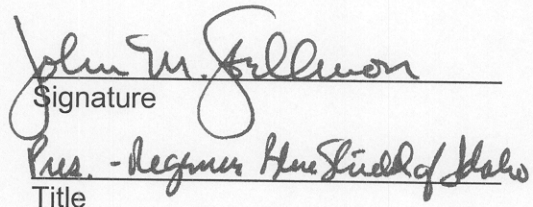 John M. Stellmon
Signature
Pres. - Regence Blue Shield of Idaho
Title